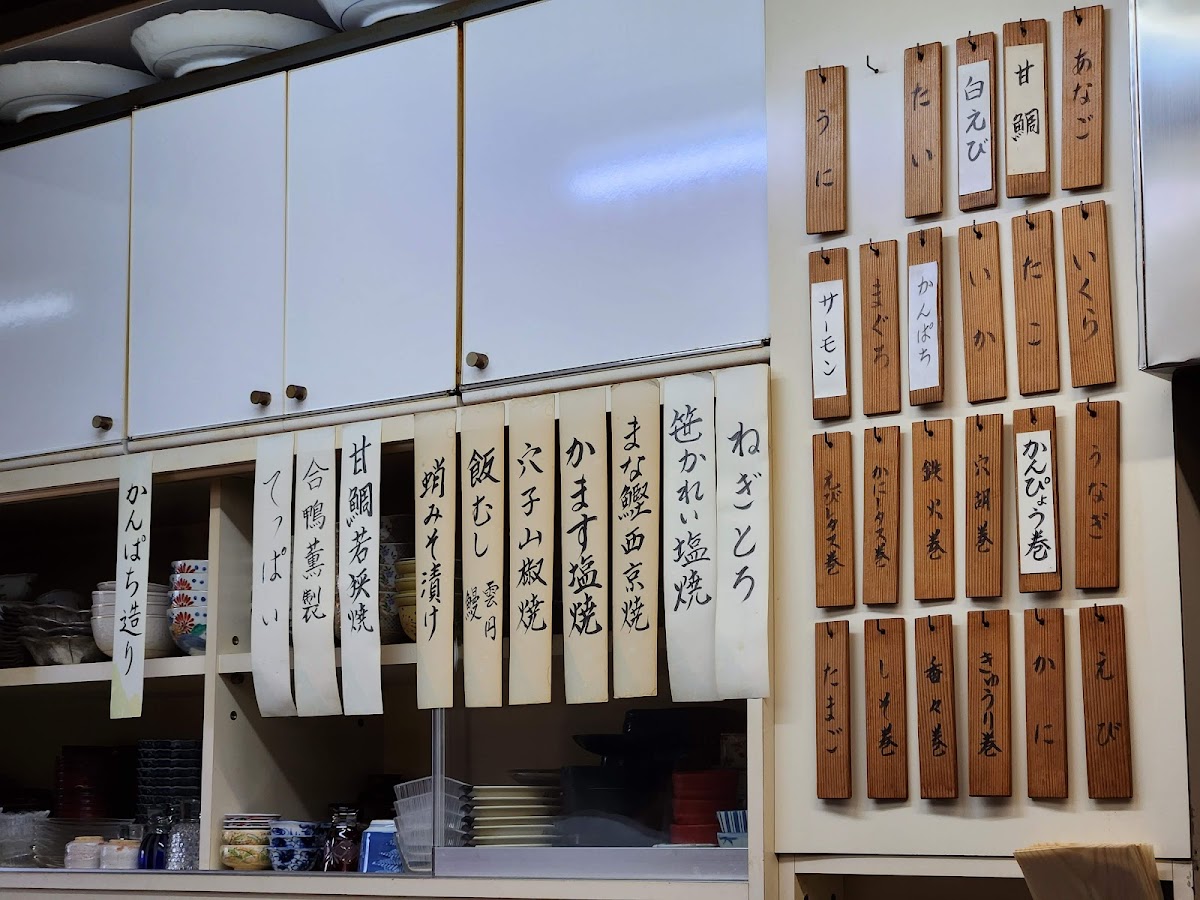 あなご
甘鯛
白えび
たい
うに
いくら
たこ
いか
かんぱち
まぐろ
サーモン
うなぎ
かんぴょう巻
穴胡巻
鉄火巻
かにレタス巻
えびレタス巻
えび
かに
きゅうり巻
香々巻
しそ巻
たまご
ねぎとろ
笹かれい塩焼
まな鰹西京焼
かます塩焼
穴子山椒焼
飯むし 雲円 鰻
蛸みそ漬け
甘鯛若狭焼
合鴨薫製
てっぱい
かんぱち造り